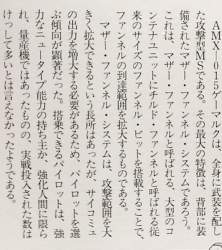 AMX-015ゲーマルは、全身に武装を配
た攻撃型MSである。その最大の特徴は、背部に装
備されたマザー・ファンネル・システムであろう。
これは、マザー・ファンネルと呼ばれる、大型のコ
ンテナユニットにチルド・ファンネルと呼ばれる従
来のサイズのファンネル・ビットを搭載することで
ファンネルの到達範囲を拡大するものである。
マザー・ファンネル・システムは、攻撃範囲を大
きく拡大できるという長所はあったが、サイコミュ
の出力を増大する必要があるため、パイロットを選
ぶ傾向が顕著だった。搭乗できるパイロットは、強
力なニュータイプ能力の持ち主か、強化人間に限ら
れ、量産機ではあったものの、実戦投入された数は
けっして多いとは言えなかったようである。